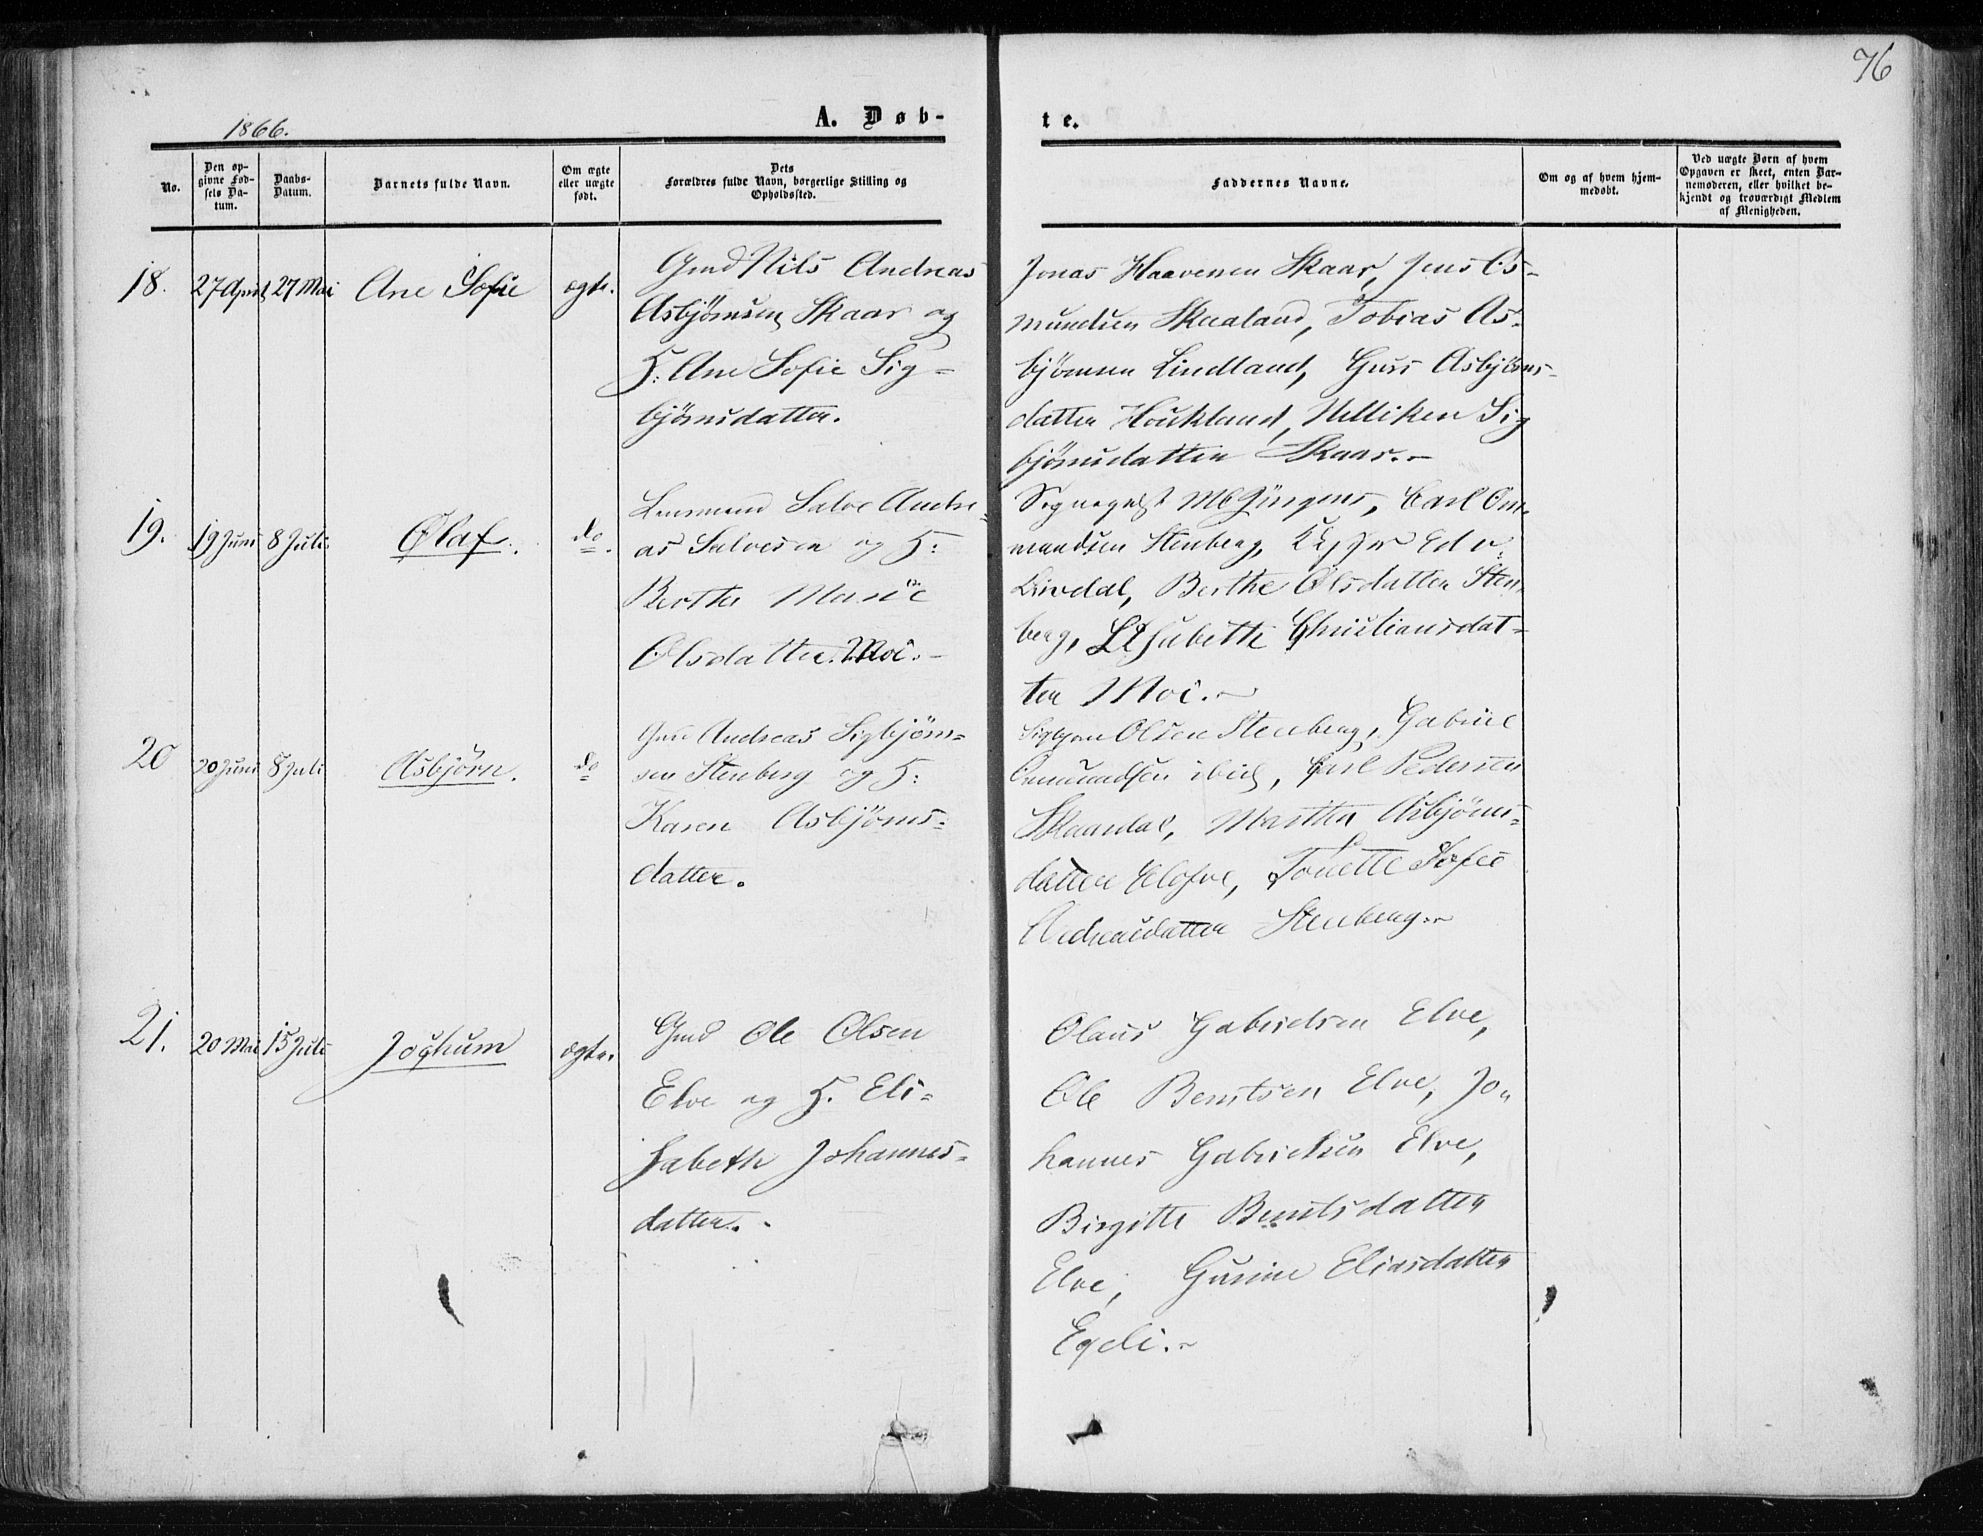 76
1866.
A. Døb-
te.
No.
Den op-
givne Fød-
sels Da-
tum.
Daabs-
Datum.
Barnets fulde Navn.
Om ægte
eller uægte
født.
Dets
Forældres fulde Navn, borgerlige Stilling og
Opholdssted.
Faddernes Navne.
Om og af hvem hjem-
medøbt.
Ved uægte Børn af hvem
Opgaven er skeet, enten Bar-
nemoderen, eller hvilket be-
kjendt og troværdigt Medlem
af Menigheden.
18.
27 April
27 Mai
Ane Sofie
ægte.
Gmd Nils Andreas
Asbjørnsen Skaar og
H. Ane Sofie Sig-
bjørnsdatter.
Jonas Haavensen Skaar, Jens Os-
mundsen Skaaland, Tobias As-
bjørnsen Lindland, Guri Asbjørns-
datter Houkland, Milliken Sig
bjørnsdatter Skaar.-
19.
19 Juni
8 Juli
Olaf.
do.
Lensmand Salve Andre-
as Salvesen og H:
Berthe Marie
Olsdatter Moi.-
Sognepræst Jürgens, Carl Om-
mundsen Stenberg, Edv.
Lindal, Berthe Olsdatter Sten-
berg, Elisabeth Christiansdat-
ter Moi.-
20
20 Juni
8 Juli
Asbjørn.
do
Gmd Andreas Sigbjørn-
sen Stenberg og H:
Karen Asbjørns-
datter.
Sigbjørn Olsen Stenberg, Gabriel
Ommundsen ibid, Carl Pedersen
Skaardal, Marthe Asbjørns-
datter, Tonette Sofie
Andreasdatter Stenberg.-
21.
20 Mai
15 Juli
Jochum
ægte.
Gmd Ole Olsen
Elve og H. Eli-
sabeth Johannes-
datter.
Olaus Gabrielsen Elve,
Ole Berntsen Elve, Jo-
hannes Gabrielsen Elve,
Birgitte Berntsdatter
Elve, Gurine Eliasdatter
Egeli.-